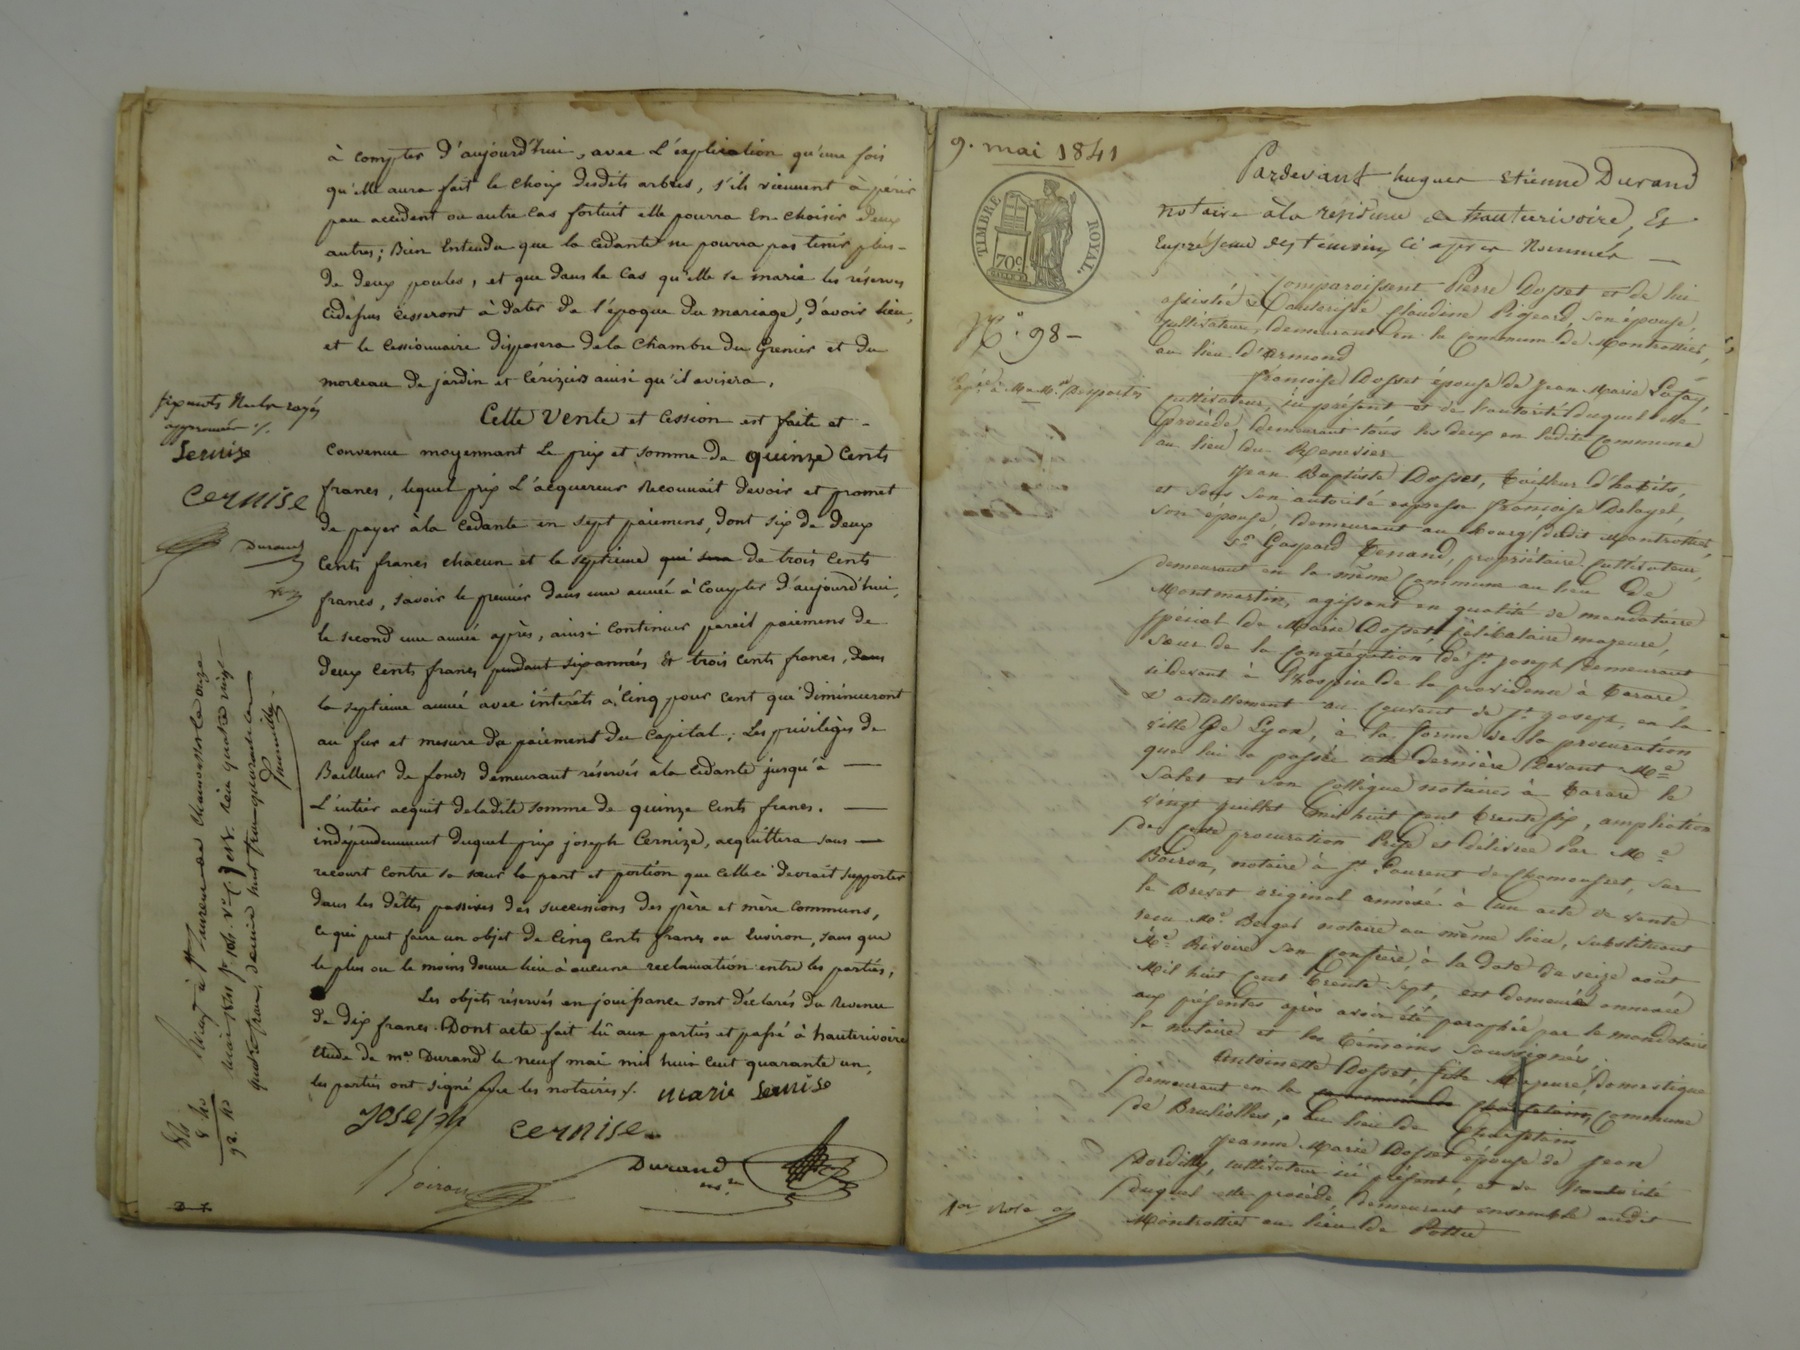 à compter d'aujourd'hui, avec L'explication qu'une fois
qu'elle aura fait le choix desdits arbres, s'ils viennent à périr
par accident ou autre cas fortuit elle pourra En choisir deux
autres; Bien Entendu que la cédante ne pourra pas tenir plus-
de deux poules, et que dans le cas qu'elle se marie les réserves
cidessus cesseront à dater de l'époque du mariage, d'avoir lieu,
et le cessionnaire disposera de la Chambre du Grenier et du
morceau de jardin et cérizier ainsi qu'il avisera.
Cette Vente et Cession est faite et -
convenue moyennant le prix et somme de quinze Cents
francs, lequel prix L'acquereur Reconnaît devoir et promet
de payer à la cédante en sept paiemens, dont six de deux
Cents francs chacun et le septieme qui sera de trois cents
francs, savoir le premier dans une année à Compter d'aujourd'hui,
le second une année après, ainsi Continuer pareil paiemens de
deux Cents francs pendant six années Et trois Cents francs, dans
la septieme année avec intérêts à Cinq pour cent qui diminueront
au fur et mesure du paiement du Capital; Les privilèges de
Bailleur de fonds demeurant réservés à la cédante jusqu'à —
L'entier acquit de ladite somme de quinze Cents francs. —
indépendemment duquel prix joseph Cernize, acquittera sans —
recourt contre sa sœur la part et portion que celle ci devrait supporter
dans les dettes passives des successions des père et mère communs,
ce qui peut faire un objet de Cinq Cents francs ou Environ, sans que
le plus ou le moins donne lieu à aucune reclamation entre les parties,
Les objets réservés en jouissance sont déclarés du Revenu
de dix francs. Dont acte fait lû aux parties et passé à hauterivoire
Etude de me. Durand le neuf mai mil huit cent quarante un,
les parties ont signé avec les notaires ∕. marie Sernise
Joseph cernise
Boiron Durand
nre
six mots Nuls rayés
approuvés ∕.
Sernise
cernise
Durand
9. mai 1841
TIMBRE ROYAL.
70c
N.° 98 -
Pardevant hugues etienne Durand
notaire à la residence de hauterivoire, Et
En présence des témoins Ci après Nommés —
Comparoissent Pierre Dosset et de lui
assistée & autorisée Claudine Pigeard, son épouse,
cultivateurs, demeurant en la Commune de Montrottier,
au lieu d'Ormond
françoise Dosset épouse de Jean Marie Lafay
cultivateur, ici présent et de l'autorité duquel elle
procède, demeurant tous les deux en ladite Commune
au lieu du
Jean Baptiste Dosset, tailleur d'habits,
et sous son autorité expresse françoise Delayet,
son épouse, demeurant au bourg dudit Montrottier,
Sr. Gaspard Tenand, propriétaire cultivateur,
demeurant en la même Commune au lieu de
Montmartin, agissant en qualité de mandataire
spécial de Marie Dosset célibataire majeure,
Sœur de la Congrégation de St. Joseph demeurant
ci devant à l'hospice de la providence à tarare,
& actuellement au Couvent de St. joseph, en la
ville de Lyon, à la forme de la procuration
que lui a passée cette dernière Devant Me.
Salet et son Collègue notaires à tarare le
vingt juillet mil huit Cent trente six, ampliation
de cette procuration Prise et délivrée Par Me.
Boiron, notaire à St. Laurent de Chamousset, sur
le Brevet original annexé à un acte de vente
reçu Me. Berger notaire au même lieu, substituant
Me. Rivoire son Confrère, à la date de seize août
mil huit Cent trente sept, est demeurée annexée
aux présentes après avoir été paraphée par le mandataire
le notaire et les témoins soussignés.
Antoinette Dosset, fille Majeure, domestique
demeurant en la Commune
de Brullioles, au lieu de Charfetain
Jeanne Marie Dosset épouse de Jean
Dordilly, cultivateur ici présent, et de l'autorité
duquel elle procède, demeurant ensemble audit
Montrottier au lieu de Pottu
1er Role